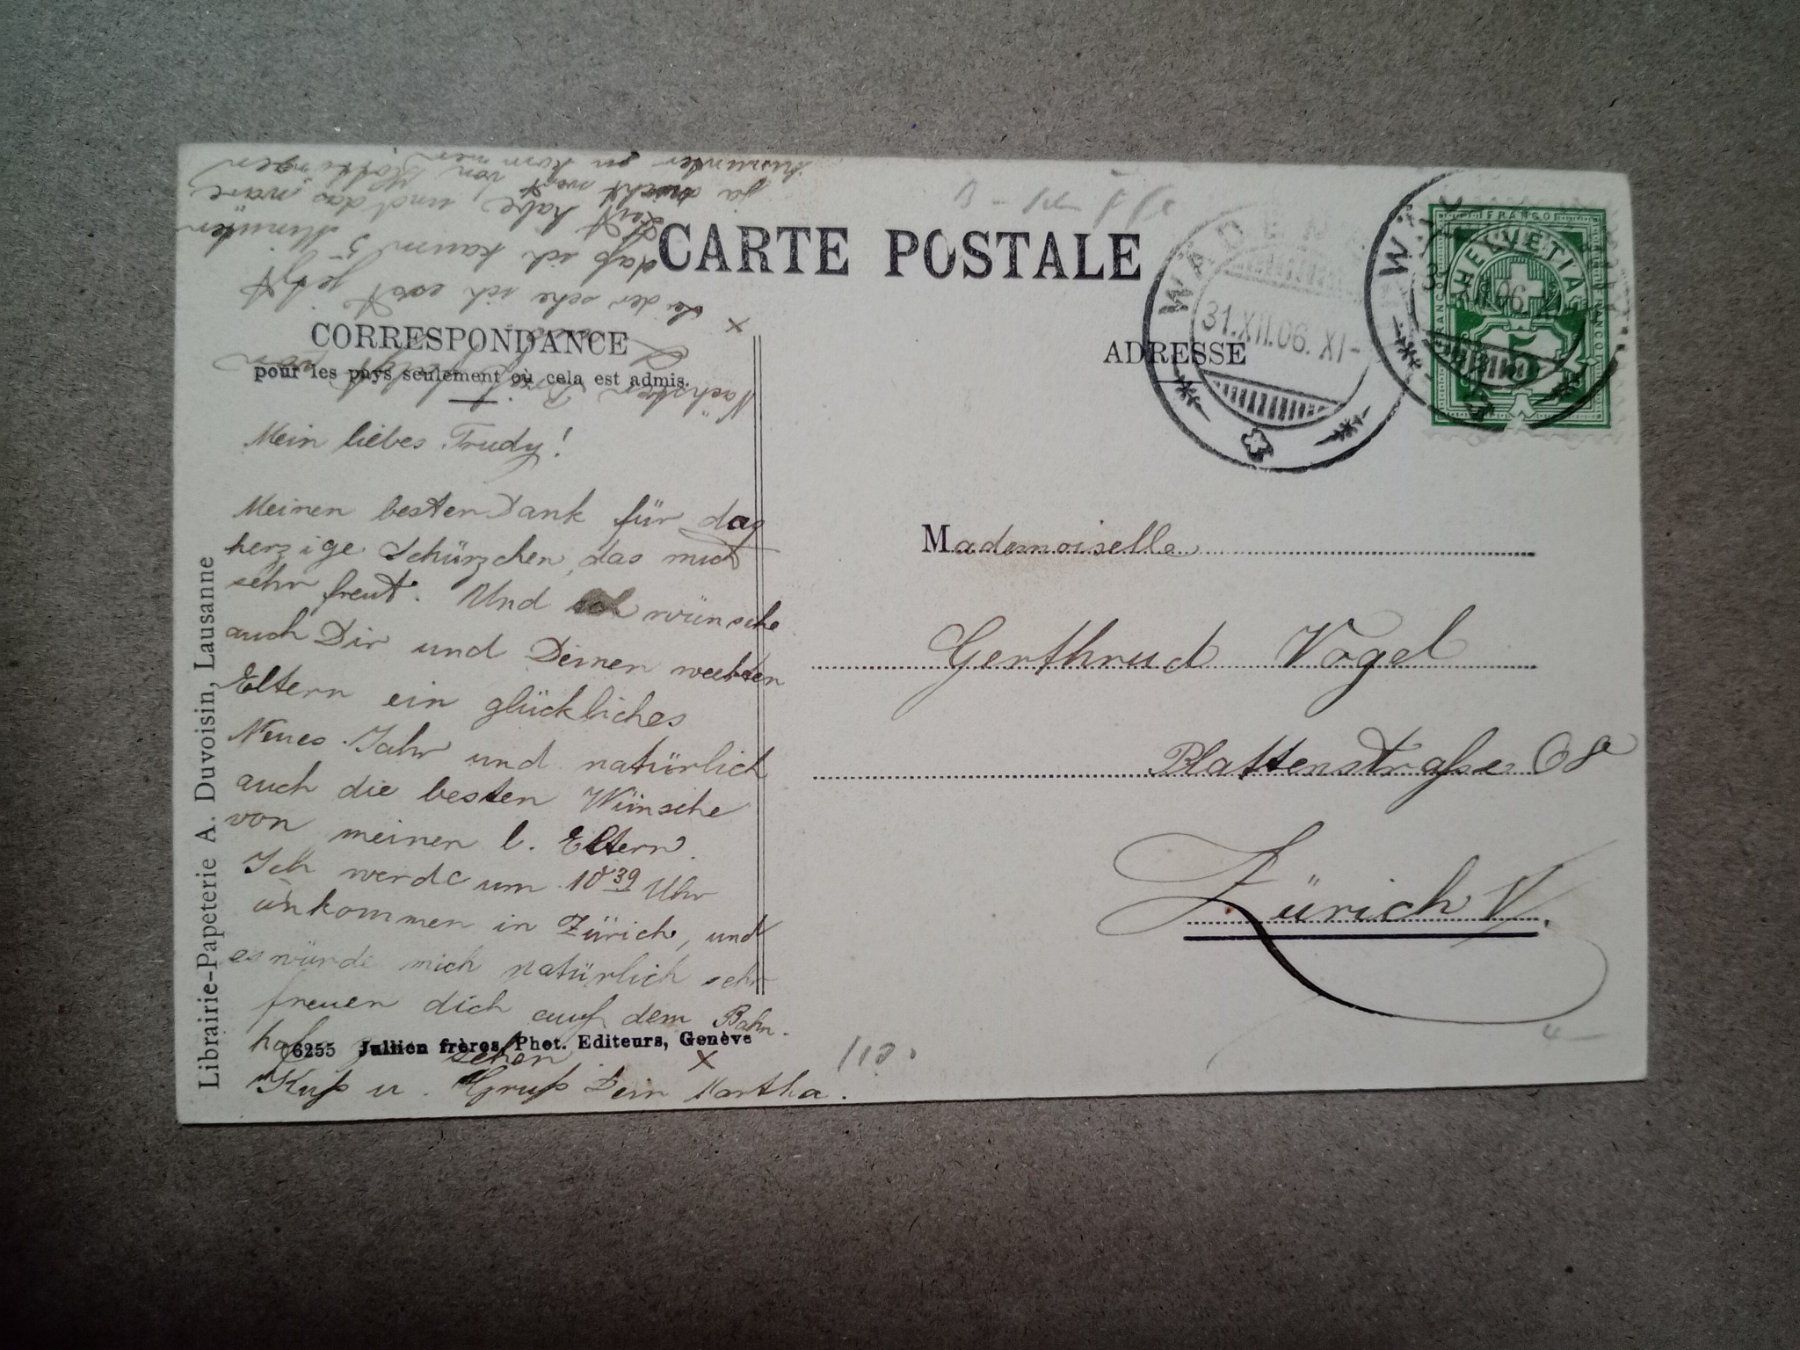 CARTE POSTALE
CORRESPONDANCE
pour les pays seulement où cela est admis.
ADRESSE
WÄDENS
31.XII.06. XI-
FRANCO
HELVETIA
5
Mein liebes Trudy!
Meinen besten Dank für das
herzige Schürzchen, das mich
sehr freut. Und ich wünsche
auch Dir und Deinen werten
Eltern ein glückliches
Neues Jahr und natürlich
auch die besten Wünsche
von meinen l. Eltern.
Ich werde um 10 39 Uhr
ankommen in Zürich, und
es würde mich natürlich sehr
freuen dich auf dem Bahn-
hof zu sehen
×
Kuß u. Gruß Dein Martha.
× Leider sehe ich erst jetzt
daß ich kaum 5 Minuten
Zeit habe, und das wäre
ja nicht nett von
hinunter zu kommen
Nächsten
Mademoiselle
Gerthrud Vogel
Plattenstraße 68
Zürich V.
Librairie-Papeterie A. Duvoisin, Lausanne
6255 Jullien frères, Phot. Editeurs, Genève
110.
4-